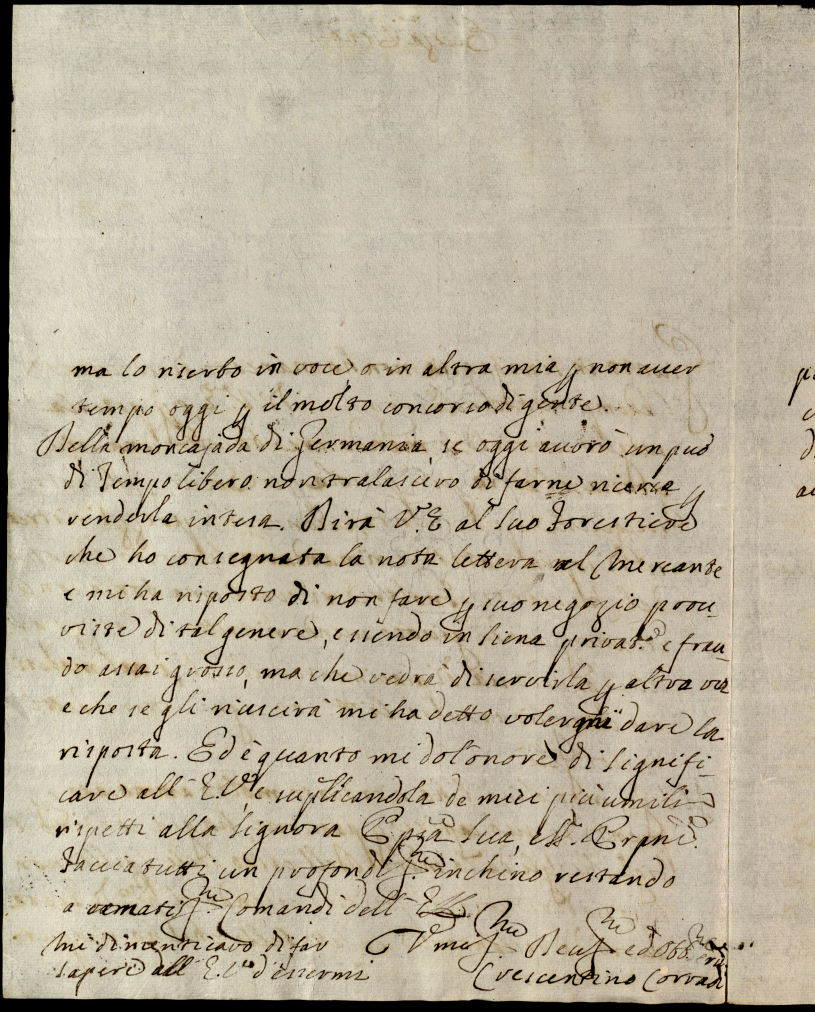 ma lo riserbo in voce, o in altra mia p non aver
tempo oggi p il molto concorso di gente.
Della moncajada di Germania, se oggi avorò un puo
di Tempo libero non tralascievo di farne ricerca p
renderla intesa. Dirà V.E. al suo Forestiere
che ho consegnata la nota lettera al Mercante
e mi ha risposto di non fare p suo negozio prou
viste di tal genere, essendo in Siena privat.e e frau
do assai grosso, ma che vedrà di servirla p altra via
e che se gli riuscirà mi ha detto volergni dare la
risposta. Ed è quanto mi do l'onore di signifi
care all' E.V. e suplicandola de miei più umili
rispetti alla Signora sua,
Faccia tutti un profondis.mo inchino restando
a Comandi dell' E.V.
Mi dimenticavo di far
sapere all' E.V. d'essermi
Vmo Devs.mo ed Obb.mo
Crescentino Corradi